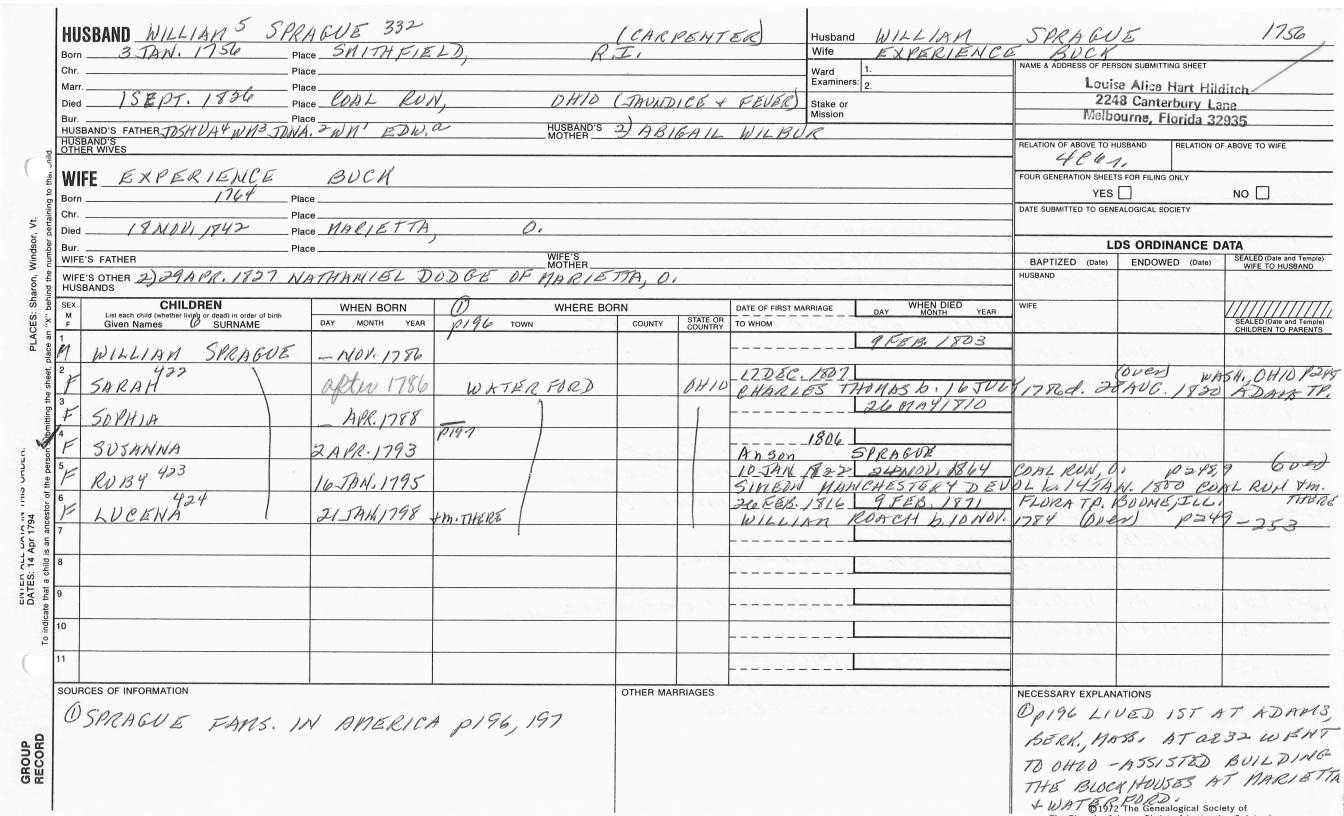 HUSBAND WILLIAM 5 SPRAGUE 332 (CARPENTER)
Born 3 JAN. 1756 Place SMITHFIELD, R.I.
Chr. Place
Marr. Place
Died 1 SEPT. 1826 Place COAL RUN, OHIO (JAUNDICE & FEVER)
Bur. Place
HUSBAND'S FATHER JOSHUA 4 WM 3 JONA. 2 WM 1 EDW. a HUSBAND'S MOTHER 2) ABIGAIL WILBUR
HUSBAND'S OTHER WIVES
WIFE EXPERIENCE BUCK
Born 1764 Place
Chr. Place
Died 18 NOV. 1842 Place MARIETTA, O.
Bur. Place
WIFE'S FATHER WIFE'S MOTHER
WIFE'S OTHER HUSBANDS 2) 29 APR. 1827 NATHANIEL DODGE OF MARIETTA, O.
Husband WILLIAM SPRAGUE 1756
Wife EXPERIENCE BUCK
Ward Examiners: 1. 2.
Stake or Mission
NAME & ADDRESS OF PERSON SUBMITTING SHEET
Louise Alice Hart Hilditch
2248 Canterbury Lane
Melbourne, Florida 32935
RELATION OF ABOVE TO HUSBAND RELATION OF ABOVE TO WIFE
FOUR GENERATION SHEETS FOR FILING ONLY
YES NO
DATE SUBMITTED TO GENEALOGICAL SOCIETY
LDS ORDINANCE DATA
BAPTIZED (Date) ENDOWED (Date) SEALED (Date and Temple) WIFE TO HUSBAND
HUSBAND
WIFE
SEALED (Date and Temple) CHILDREN TO PARENTS
SEX M F CHILDREN WHEN BORN ① WHERE BORN DATE OF FIRST MARRIAGE WHEN DIED
List each child (whether living or dead) in order of birth
Given Names 6 SURNAME DAY MONTH YEAR p196 TOWN COUNTY STATE OR COUNTRY TO WHOM DAY MONTH YEAR
1 M WILLIAM SPRAGUE – NOV. 1786 9 FEB. 1803
2 F SARAH 422 after 1786 WATERFORD OHIO 17 DEC. 1807 (over) WASH., OHIO p248
CHARLES THOMAS b. 16 JULY 1786 d. 28 AUG. 1820 ADAMS TP.
3 F SOPHIA – APR. 1788 26 MAY 1810
4 F SUSANNA 2 APR. 1793 p197 1806
Anson SPRAGUE
5 F RUBY 423 16 JAN. 1795 10 JAN. 1822 24 NOV. 1864 COAL RUN, O. p249 (over)
SIMEON MANCHESTER 4 DEVOL b. 14 JAN. 1800 COAL RUN +m. THERE
6 F LUCENA 424 21 JAN. 1798 +m. THERE 26 FEB. 1816 9 FEB. 1871 FLORA TP., BOONE, ILL.
WILLIAM ROACH b. 10 NOV. 1784 (over) p249-253
7
8
9
10
11
SOURCES OF INFORMATION
① SPRAGUE FAMS. IN AMERICA p196, 197
OTHER MARRIAGES
NECESSARY EXPLANATIONS
① p196 LIVED 1ST AT ADAMS,
BERK., MASS. AT 32 WENT
TO OHIO – ASSISTED BUILDING
THE BLOCKHOUSES AT MARIETTA
+ WATERFORD.
©1972 The Genealogical Society of
PLACES: Sharon, Windsor, Vt.
ENTER ALL DATA IN THIS ORDER:
DATES: 14 Apr 1794
To indicate that a child is an ancestor of the person submitting the sheet, place an "X" behind the number pertaining to that child.
GROUP RECORD